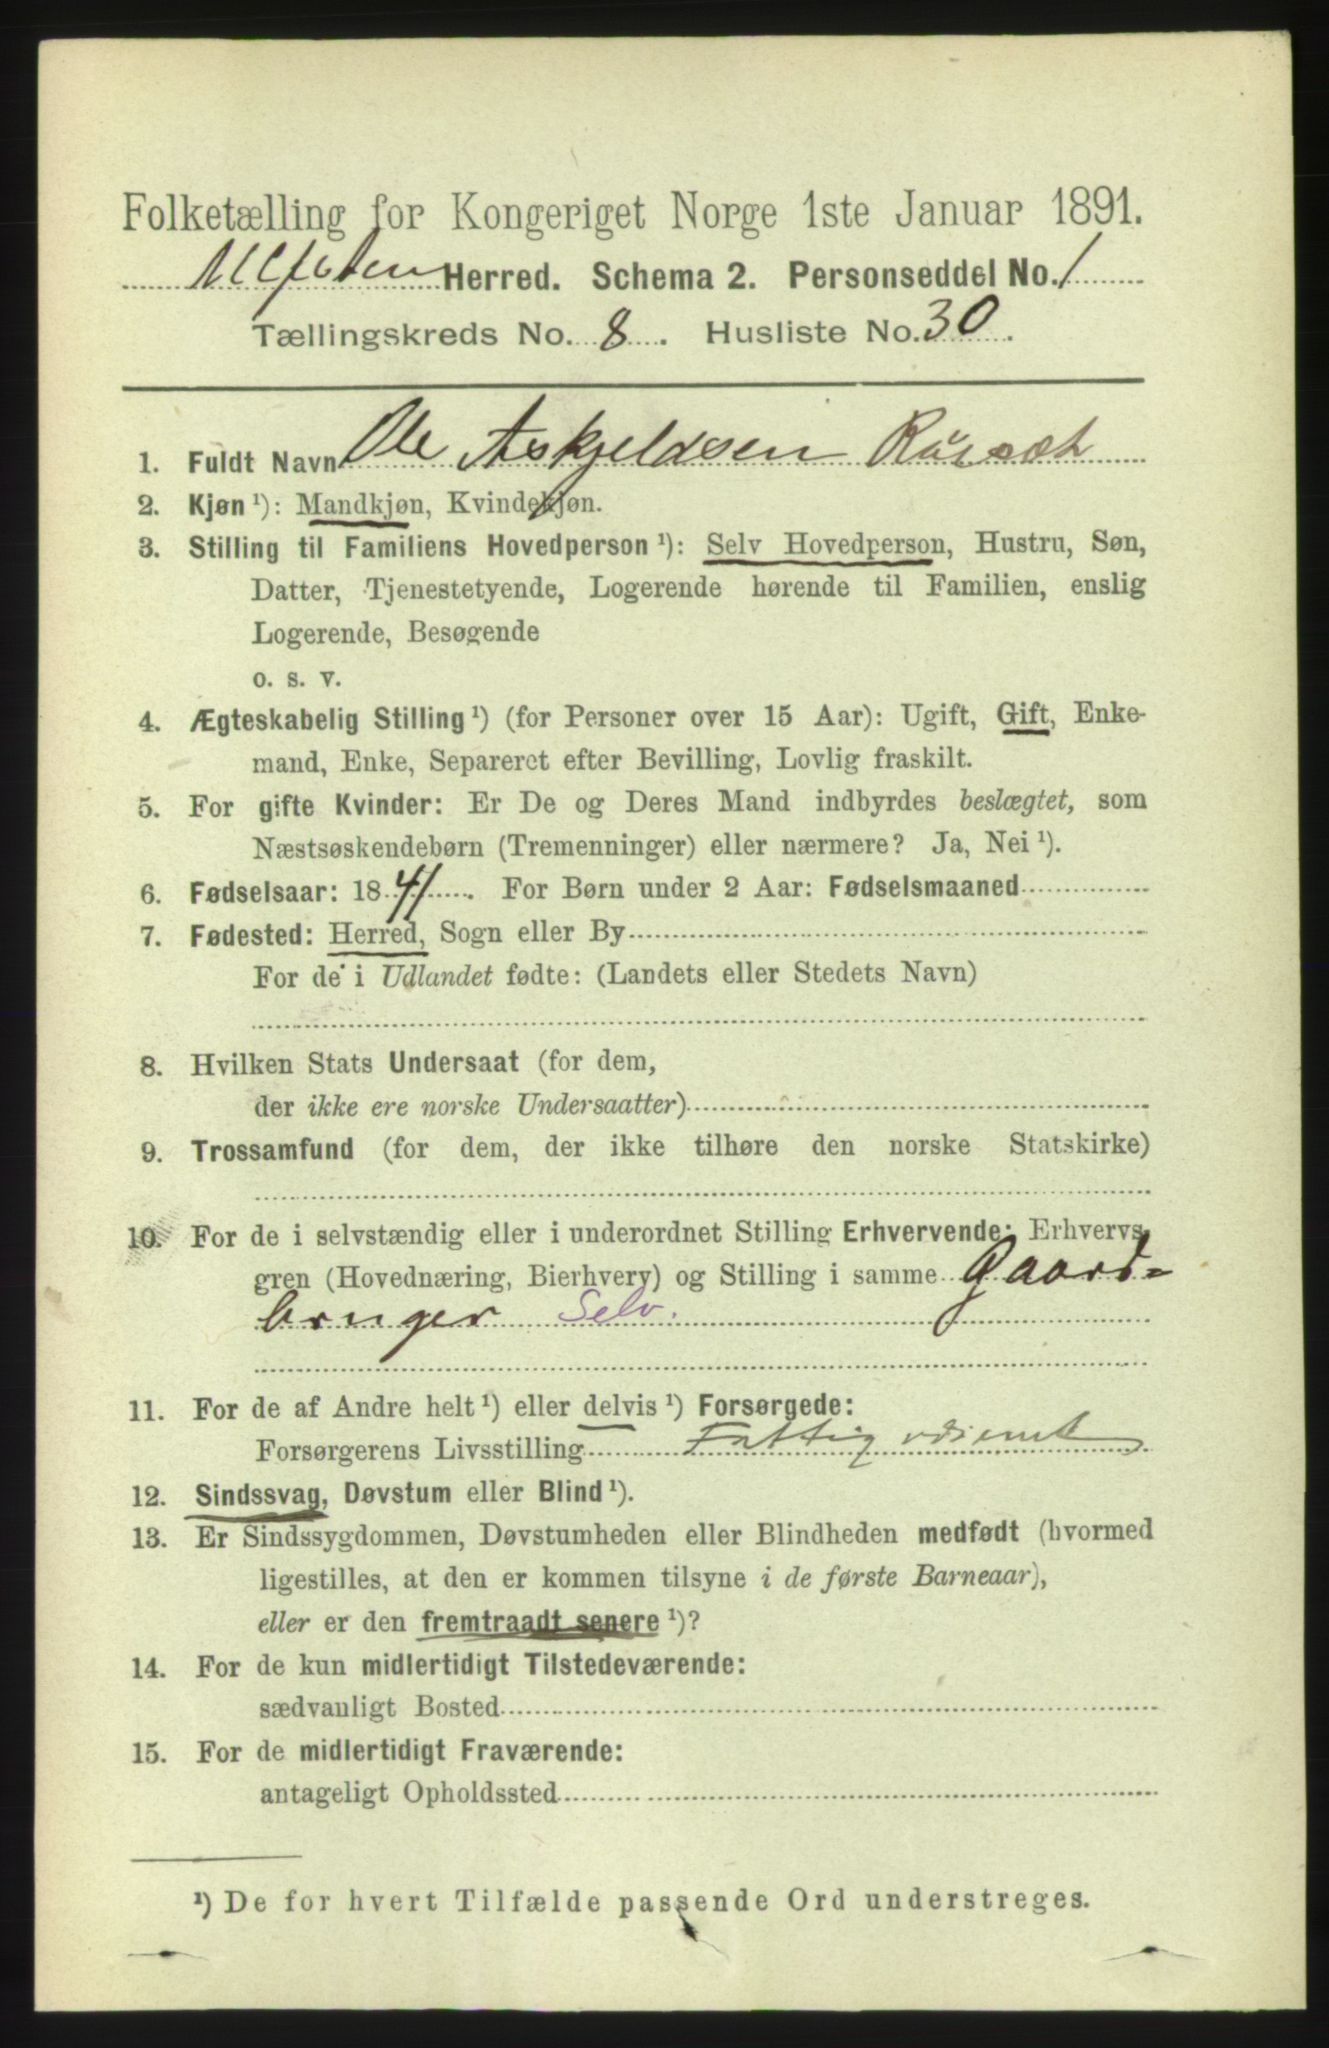 Folketælling for Kongeriget Norge 1ste Januar 1891.
Herred. Schema 2. Personseddel No. 1
Tællingskreds No. 8. Husliste No. 30.
1. Fuldt Navn Ole Askjeldsen
2. Kjøn ¹): Mandkjøn, Kvindekjøn.
3. Stilling til Familiens Hovedperson ¹): Selv Hovedperson, Hustru, Søn,
Datter, Tjenestetyende, Logerende hørende til Familien, enslig
Logerende, Besøgende
o. s. v.
4. Ægteskabelig Stilling ¹) (for Personer over 15 Aar): Ugift, Gift, Enke-
mand, Enke, Separeret efter Bevilling, Lovlig fraskilt.
5. For gifte Kvinder: Er De og Deres Mand indbyrdes beslægtet, som
Næstsøskendebørn (Tremenninger) eller nærmere? Ja, Nei ¹).
6. Fødselsaar: 1841. For Børn under 2 Aar: Fødselsmaaned
7. Fødested: Herred, Sogn eller By
For de i Udlandet fødte: (Landets eller Stedets Navn)
8. Hvilken Stats Undersaat (for dem,
der ikke ere norske Undersaatter)
9. Trossamfund (for dem, der ikke tilhøre den norske Statskirke)
10. For de i selvstændig eller i underordnet Stilling Erhvervende: Erhvervs
gren (Hovednæring, Bierhverv) og Stilling i samme Gaard-
bruger Selv.
11. For de af Andre helt ¹) eller delvis ¹) Forsørgede:
Forsørgerens Livsstilling
12. Sindssvag, Døvstum eller Blind ¹).
13. Er Sindssygdommen, Døvstumheden eller Blindheden medfødt (hvormed
ligestilles, at den er kommen tilsyne i de første Barneaar),
eller er den fremtraadt senere ¹)?
14. For de kun midlertidigt Tilstedeværende:
sædvanligt Bosted
15. For de midlertidigt Fraværende:
antageligt Opholdssted
¹) De for hvert Tilfælde passende Ord understreges.